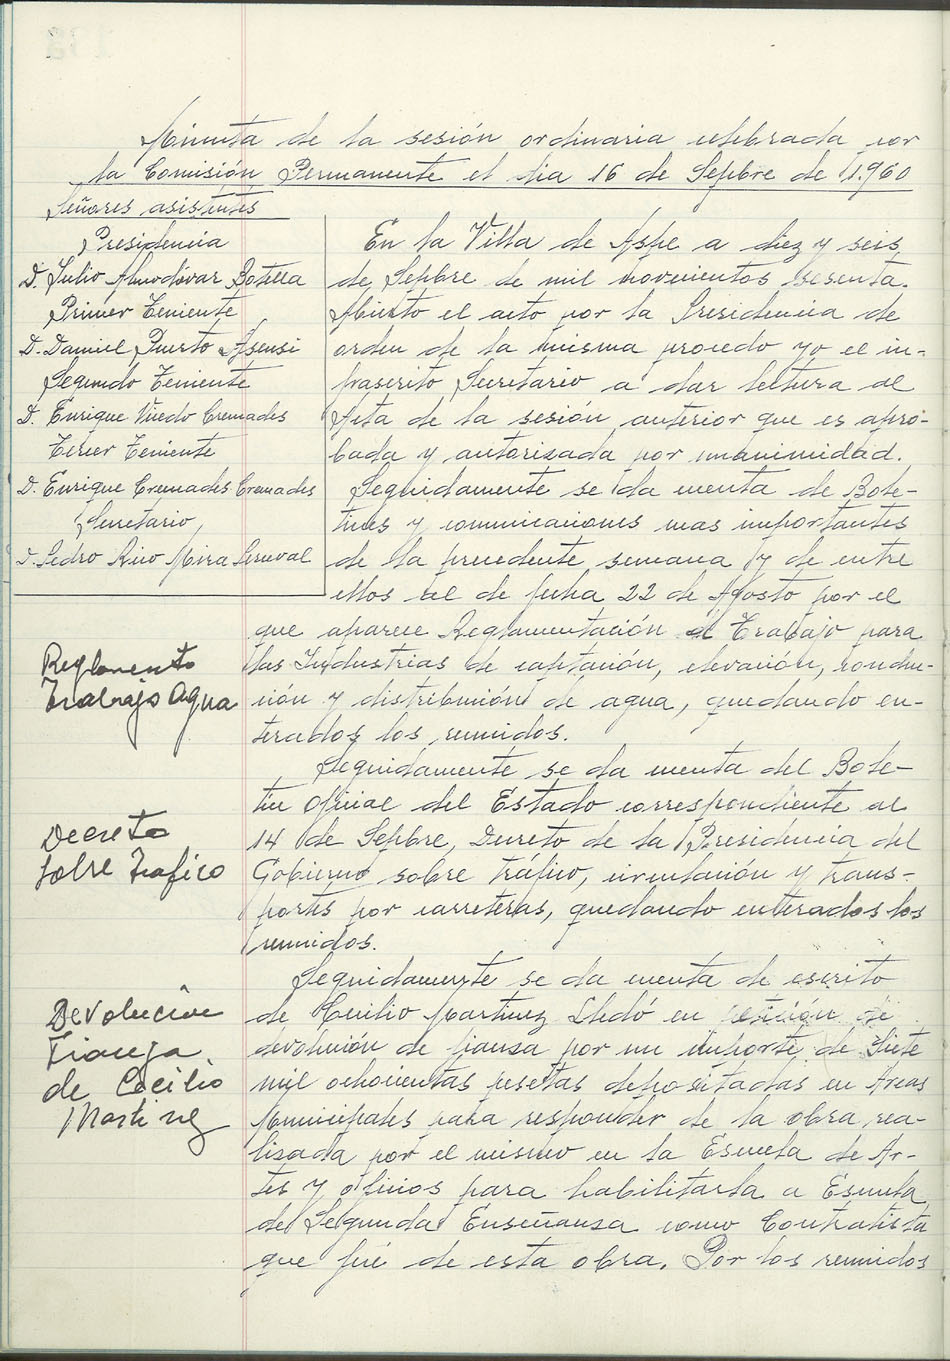 Minuta de la sesión ordinaria celebrada por
la Comisión Permanente el dia 16 de Sepbre de 1.960
Señores asistentes
Presidencia
D. Julio Almodóvar Botella
Primer Teniente
D. Daniel Puerto Asensi
Segundo Teniente
D. Enrique Viudo Cremades
Tercer Teniente
D. Enrique Cremades Cremades
Secretario,
D. Pedro Rico Mira Perceval
En la Villa de Aspe a diez y seis
de Sepbre de mil novecientos sesenta.
Abierto el acto por la Presidencia de
orden de la misma procedo yo el in-
frascrito Secretario a dar lectura al
Acta de la sesión anterior que es apro-
bada y autorizada por unanimidad.
Seguidamente se da cuenta de Bole-
tines y comunicaciones mas importantes
de la precedente semana y de entre
ellos el de fecha 22 de Agosto por el
que aparece Reglamentación de Trabajo para
las Industrias de captación, elevación, conduc-
ción y distribución de agua, quedando en-
terados los reunidos.
Reglamento
Trabajo Agua
Seguidamente se da cuenta del Bole-
tin Oficial del Estado correspondiente al
14 de Sepbre, Decreto de la Presidencia del
Gobierno sobre tráfico, circulación y trans-
portes por carreteras, quedando enterados los
reunidos.
Decreto
sobre Trafico
Seguidamente se da cuenta de escrito
de Cecilio Martinez Lledó en petición de
devolución de fianza por un importe de Siete
mil ochocientas pesetas depositadas en Arcas
Municipales para responder de la obra rea-
lizada por el mismo en la Escuela de Ar-
tes y oficios para habilitarla a Escuela
de Segunda Enseñanza como Contratista
que fué de esta obra. Por los reunidos
Devolución
Fianza
de Cecilio
Martinez